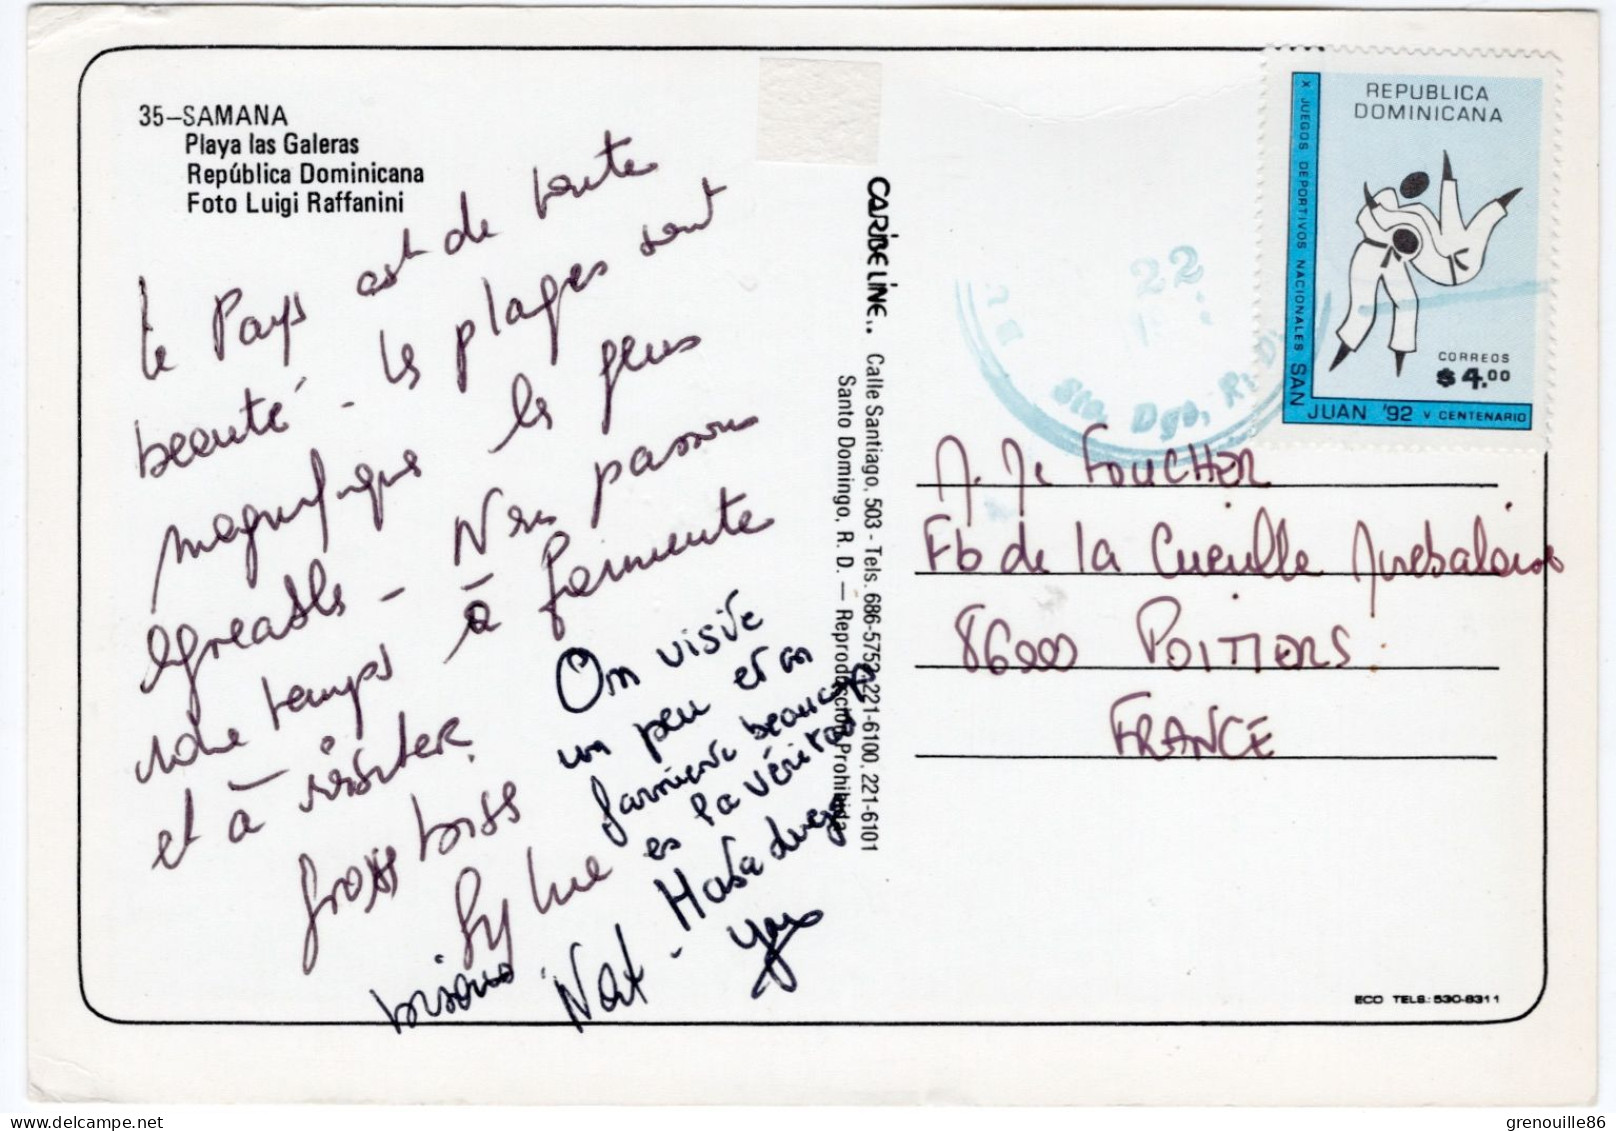 35–SAMANA
Playa las Galeras
República Dominicana
Foto Luigi Raffanini
le Pays est de toute
beauté - les plages sont
magnifiques les gens
agreables - Nous passons
notre temps à farniente
et à visiter.
gross biss
Sylvie
On visite
un peu et on
farniente beaucoup
es la véritas
Hasta luego
bisous Nat - Yan
CARIBELINE..
Calle Santiago, 503 - Tels. 686-5752, 221-6100, 221-6101
Santo Domingo, R. D. — Reproducción Prohibida
REPUBLICA
DOMINICANA
X JUEGOS DEPORTIVOS NACIONALES SAN
JUAN '92 V CENTENARIO
CORREOS
$4.00
22
Sto. Dgo, R. D.
FOUCHER
Fb de la Cueille
86000 POITIERS
FRANCE
ECO TELS.: 530-8311
grenouille86